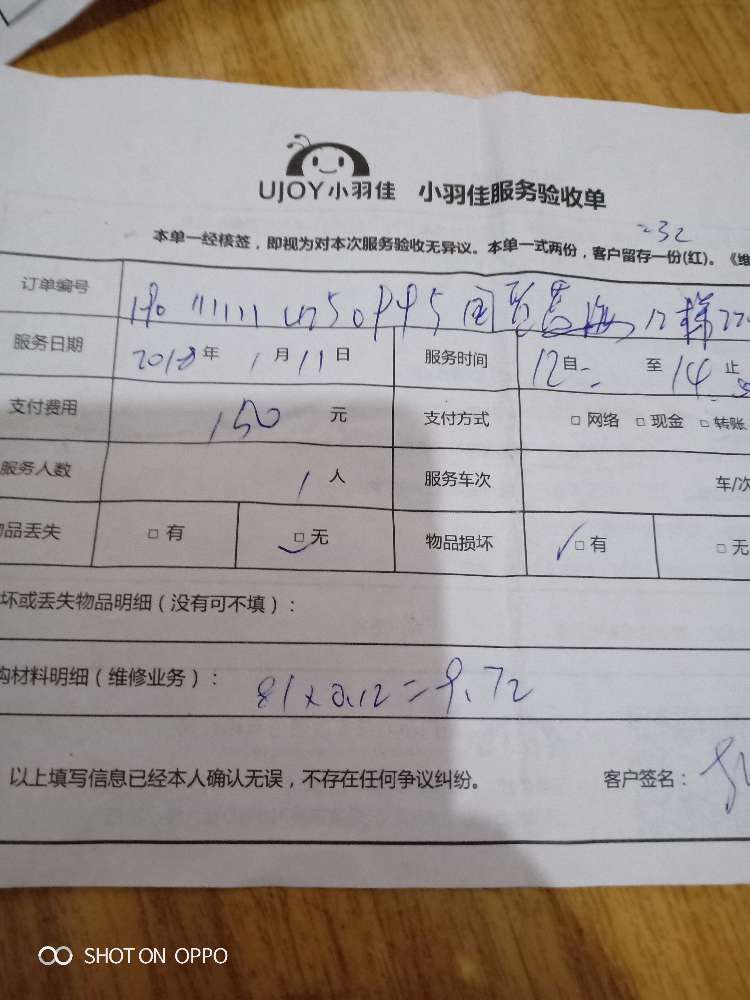 UJOY小羽佳 小羽佳服务验收单
=32
本单一经核签，即视为对本次服务验收无异议。本单一式两份，客户留存一份(红)。《维
订单编号
服务日期 2018年 1月11日 服务时间 12自 至 14止
支付费用 150 元 支付方式 □ 网络 □ 现金 □ 转账
服务人数 1 人 服务车次 车/次
品丢失 □ 有 □ 无 物品损坏 □ 有 □ 无
坏或丢失物品明细（没有可不填）：
购材料明细（维修业务）： 81×0.12=9.72
以上填写信息已经本人确认无误，不存在任何争议纠纷。 客户签名：
SHOT ON OPPO